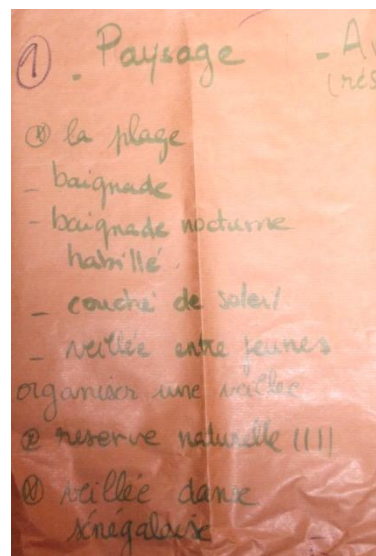 ① - Paysage - A
(rés
⊗ la plage
- baignade
- baignade nocturne
habillé.
- couché de soleil
- veillée entre jeunes
organiser une veillée
⊗ reserve naturelle (III)
⊗ veillée danse
sénégalaise -